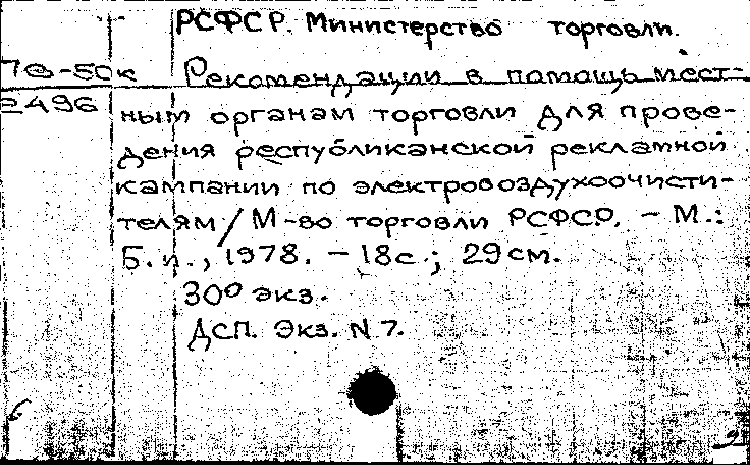 РСФСР. Министерство торговли.
78-50к Рекомендации в помощь мест-
2496 ным органам торговли для прове-
дения республиканской рекламной
кампании по электровоздухоочисти-
телям / М-во торговли РСФСР. - М.:
Б. и., 1978. - 18с.; 29см.
300 экз.
ДСП. Экз. N 7.